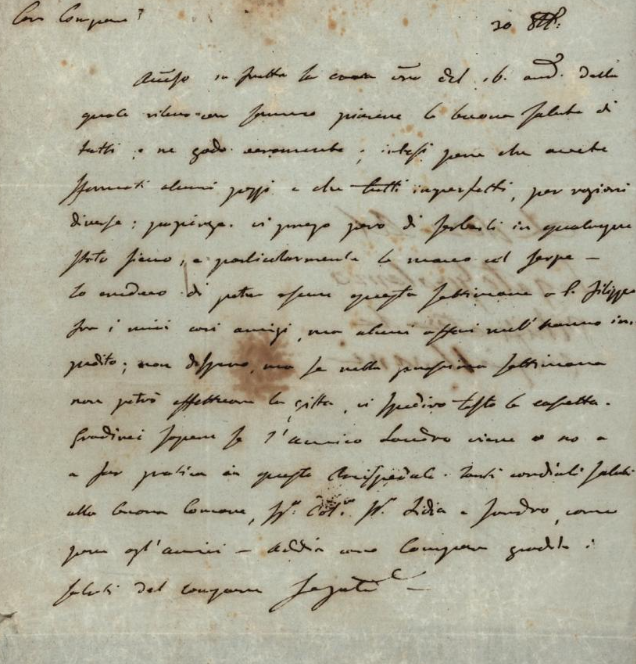 Caro Compare 20 8bre:
Accuso in fretta la cara vra del 16. and. dalla
quale rilevo con sommo piacere la buona salute di
tutti, e ne godo veramente; intesi pure che avete
formati alcuni pezzi e che tutti imperfetti, per ragioni
diverse; pazienza. vi prego però di serbarli in qualunque
stato sieno, e particolarmente la mano col serpe –
Io credevo di poter essere questa settimana a S. Filippo
fra i miei cari amici, ma alcuni affari me l'hanno im-
pedito; non dispero, ma se nella prossima settimana
non potrò effettuare la gita, vi spedirò tosto la casetta.
Gradirei sapere se l'amico Landro viene o no a
a far pratica in questo Arcispedale. tanti cordiali saluti
alla buona Comare, Lidia e Sandro, come
pure agl'amici – Addio caro Compare gradite i
saluti del compare Segato